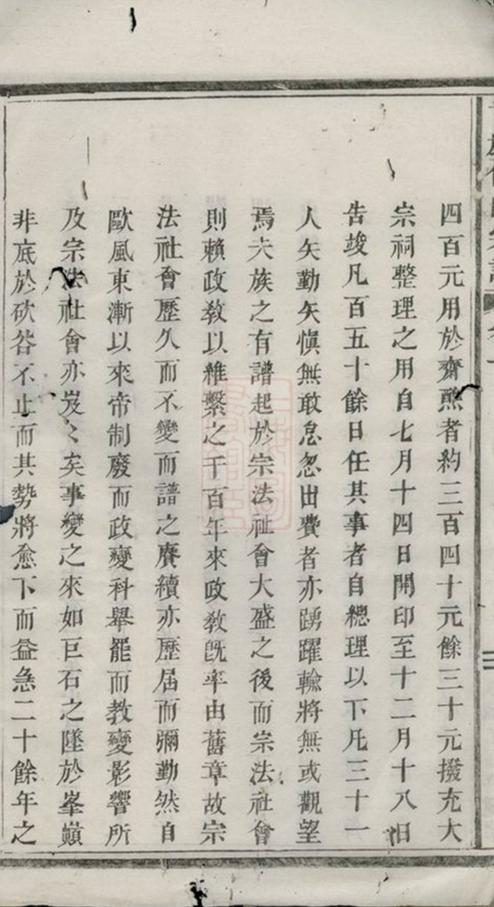 四百元用於齋㷛者約三百四十元餘三十元撥充大
宗祠整理之用自七月十四日開印至十二月十八日
告竣凡百五十餘日任其事者自總理以下凡三十一
人矢勤矢愼無敢怠忽出費者亦踴躍輸將無或觀望
焉夫族之有譜起於宗法社會大盛之後而宗法社會
則賴政教以維繫之千百年來政教旣率由舊章故宗
法社會歷久而不變而譜之賡續亦歷屆而彌勤然自
歐風東漸以來帝制廢而政變科舉罷而教變影響所
及宗法社會亦岌〻矣事變之來如巨石之墜於峯巔
非底於砍谷不止而其勢將愈下而益急二十餘年之